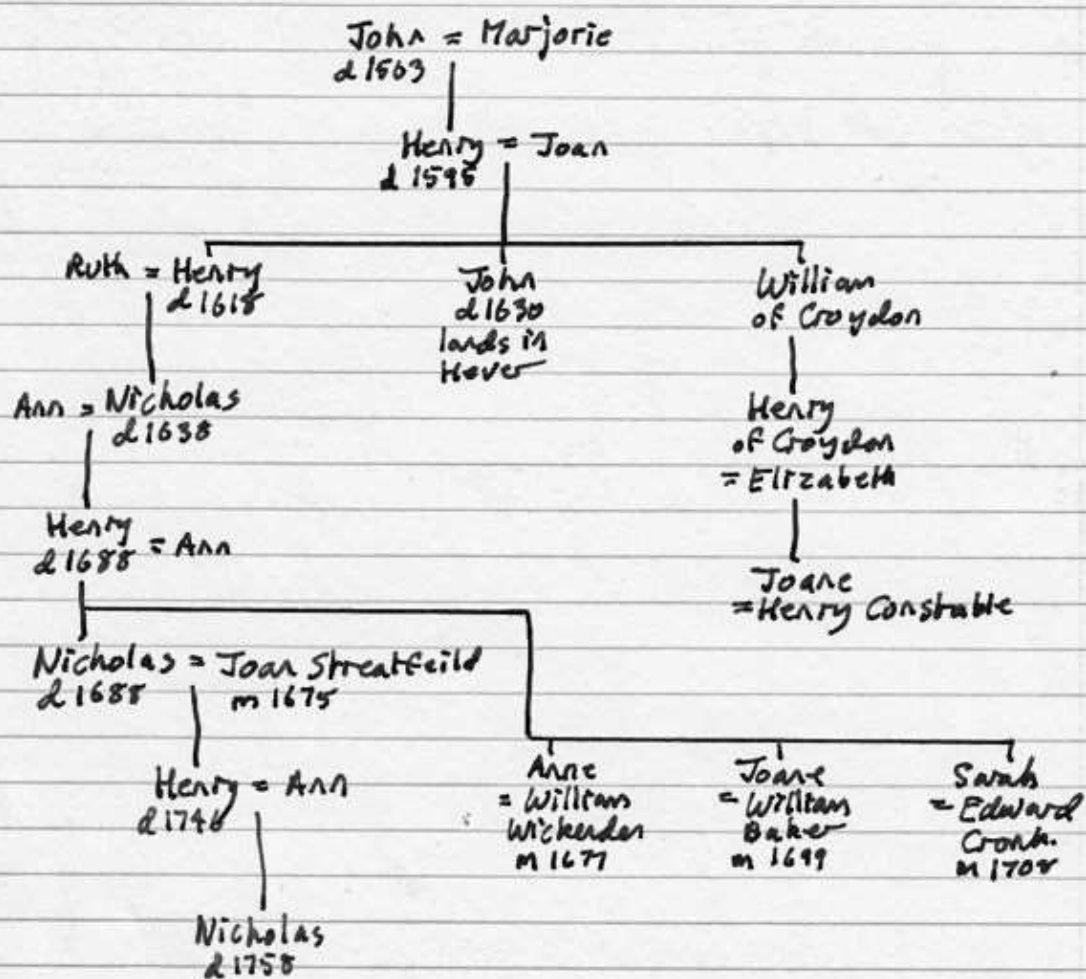 John = Marjorie
d 1563
Henry = Joan
d 1595
Ruth = Henry
d 1618
John
d 1630
lands in
Hever
William
of Croydon
Ann = Nicholas
d 1638
Henry
of Croydon
= Elizabeth
Henry = Ann
d 1688
Joane
= Henry Constable
Nicholas = Joan Streatfeild
d 1688 m 1675
Henry = Ann
d 1746
Anne
= William
Wickenden
m 1677
Joane
= William
Baker
m 1699
Sarah
= Edward
Cronk.
m 1708
Nicholas
d 1758